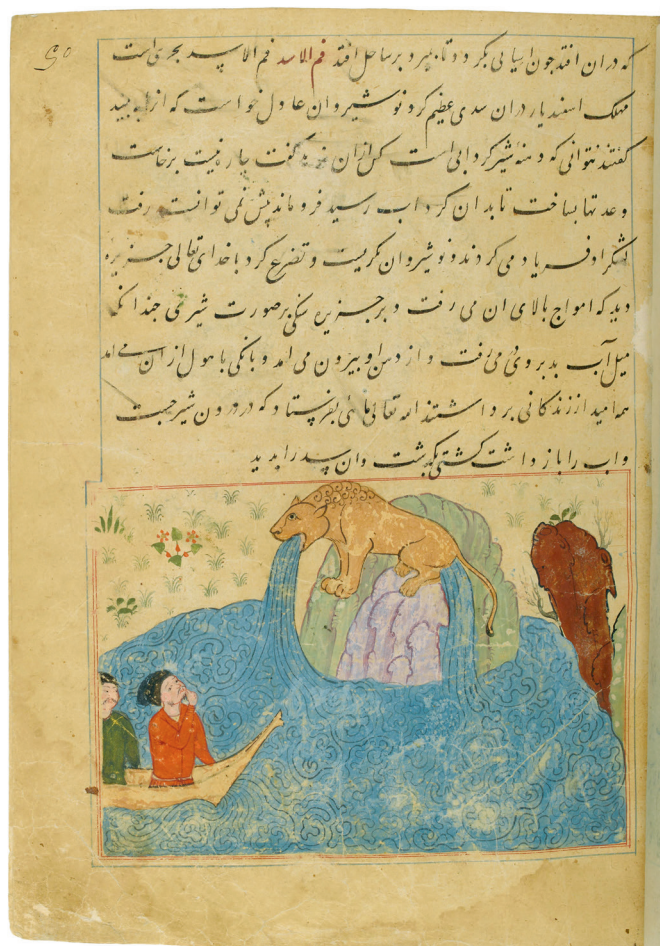 که در ان افتد چون اسیابی بکردد تا بمیرد و برساحل افتد فم الاسد فم الاسد بحری است
مهلک اسفندیار در ان سدی عظیم کرد نوشیروان عادل خواست که از انرا ببیند
کفتند نتوانی که دهنه شیر کردابی است کس از ان نرهد کفت چاره نیست برخاست
وعدتها بساخت تا بدان کرداب رسید فرو ماند پیش نمی توانست رفت
لشکر او فریاد می کردند و نوشیروان بکریست و تضرع کرد با خدای تعالی جزیره
دید که امواج بالای ان می رفت و بر جزیره سنکی بر صورت شیری چندانکه
میل آب بدبر وی می رفت و از دهن او بیرون می امد و بانکی با هول از ان می امد
همه امید از زندکانی برداشتند الله تعالی ماهی بفرستاد که در درون شیر جست
واب را باز داشت کشتی بکذشت وان سد را بدید